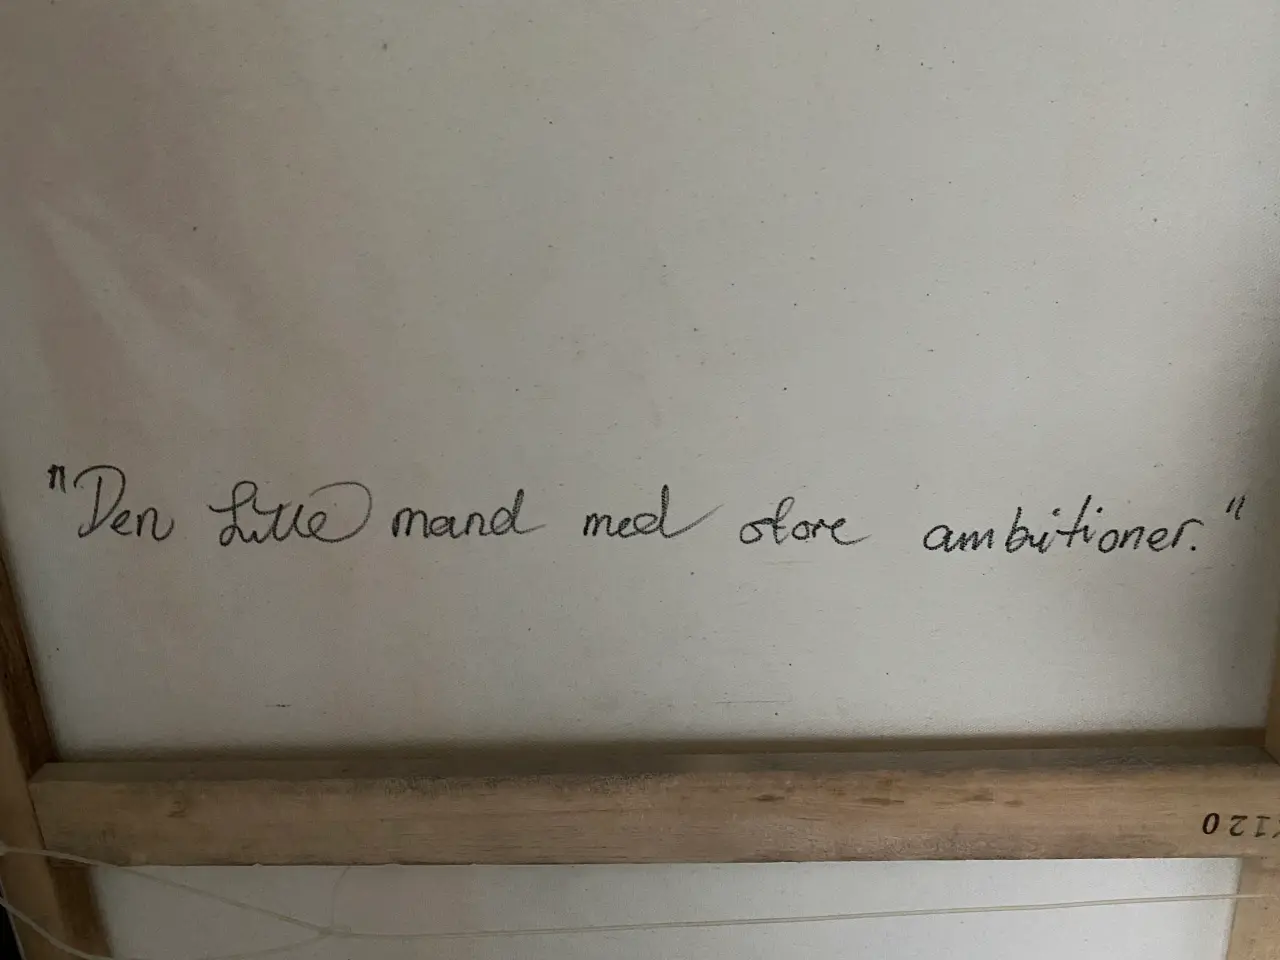 "Den Lille mand med store ambitioner."
120